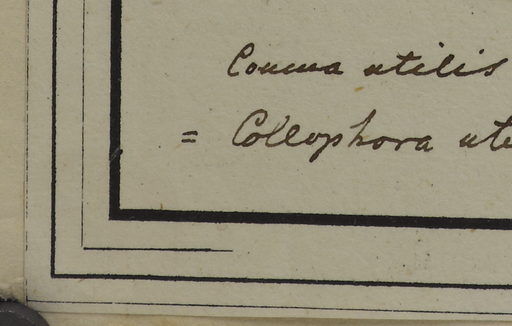 Couma utilis
= Collophora ut